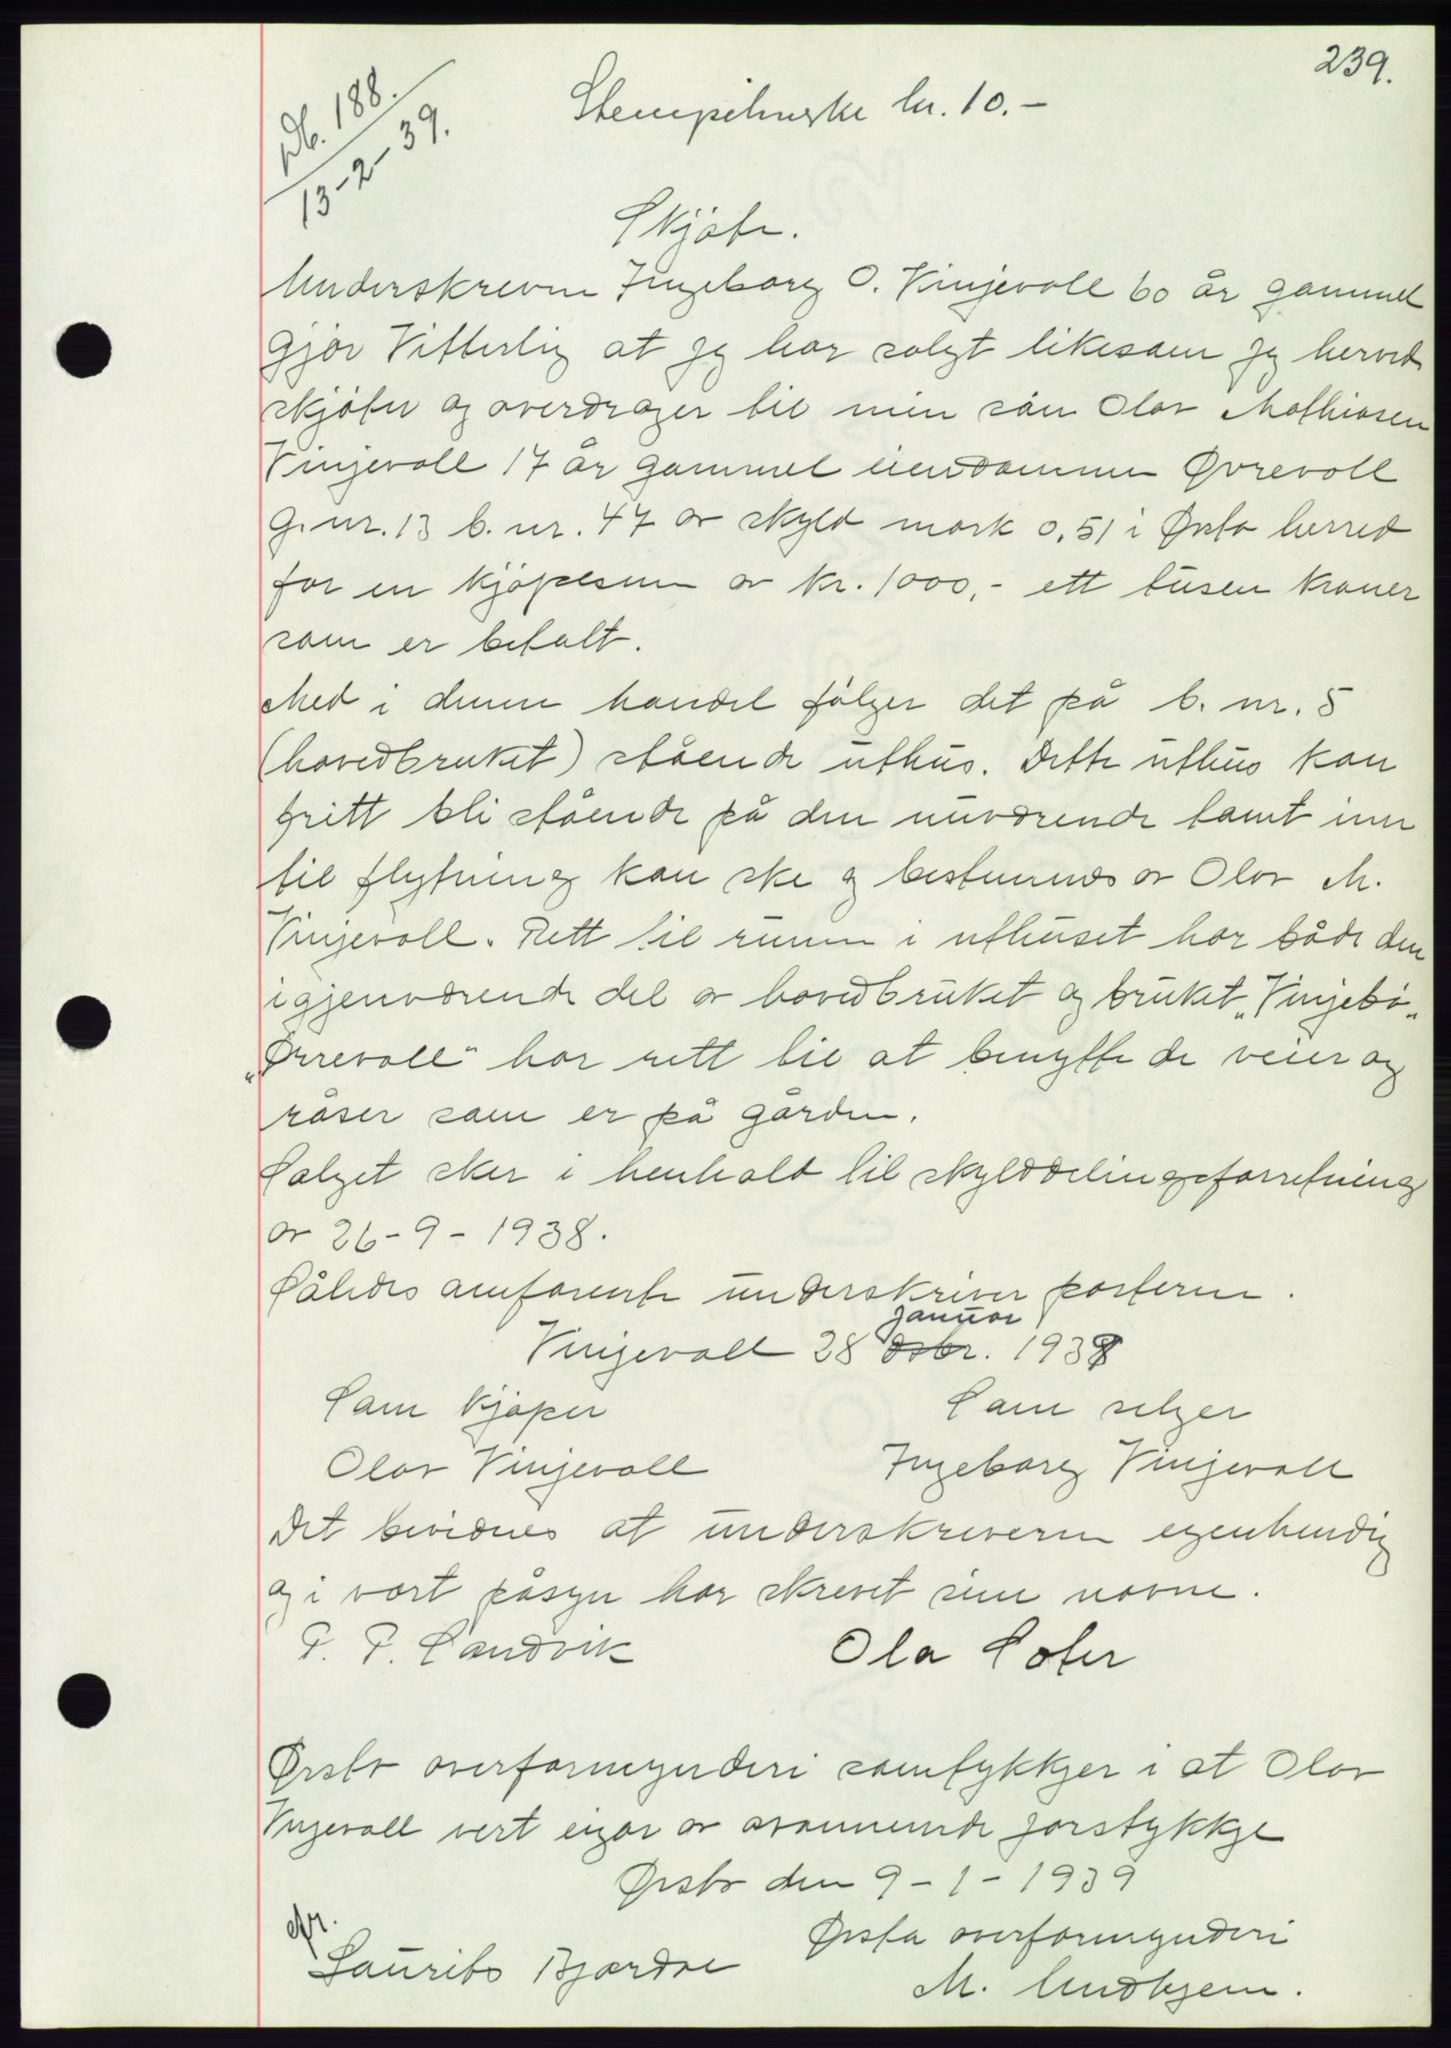 239.
Db. 188.
13-2-39.
Stempelmerke kr. 10.-
Skjøte.
Underskrevne Ingeborg O. Vinjevoll 60 år gammel
gjør Vitterlig at jeg har solgt likesom jeg herved
skjøter og overdrager til min søn Olav Mathiasen
Vinjevoll 17 år gammel eiendommen Øvrevoll
g.nr. 13 b. nr. 47 av skyld mark 0,51 i Ørsta herred
for en kjøpesum av kr. 1000,- ett tusen kroner
som er betalt.
Med i denne handel følger det på b. nr. 5
(hovedbruket) stående uthus. Dette uthus kan
fritt bli stående på den nuværende tomt inn
til flytning kan ske og bestemmes av Olav M.
Vinjevoll. Rett til rumm i uthuset har både den
igjenværende del av hovedbruket og bruket „Vinjebø„
„Øvrevoll" har rett til at benytte de veier og
råser som er på gården.
Salget sker i henhold til skylddelingsforretning
av 26-9-1938.
Således omforente underskriver parterne.
januar
Vinjevoll 28 dsbr. 1939
Som kjøper Som selger
Olav Vinjevoll Ingeborg Vinjevoll
Det bevidnes at underskriverne egenhendig
og i vort påsyn har skrevet sine navne.
P. P. Sandvik Ola Sæter
Ørsta overformynderi samtykkjer i at Olav
Vinjevoll vert eigar av ovannemnde jorstykkje
Ørsta den 9-1-1939
Ørsta overformynderi
efr.
Laurits Bjørdal M. Undhjem.